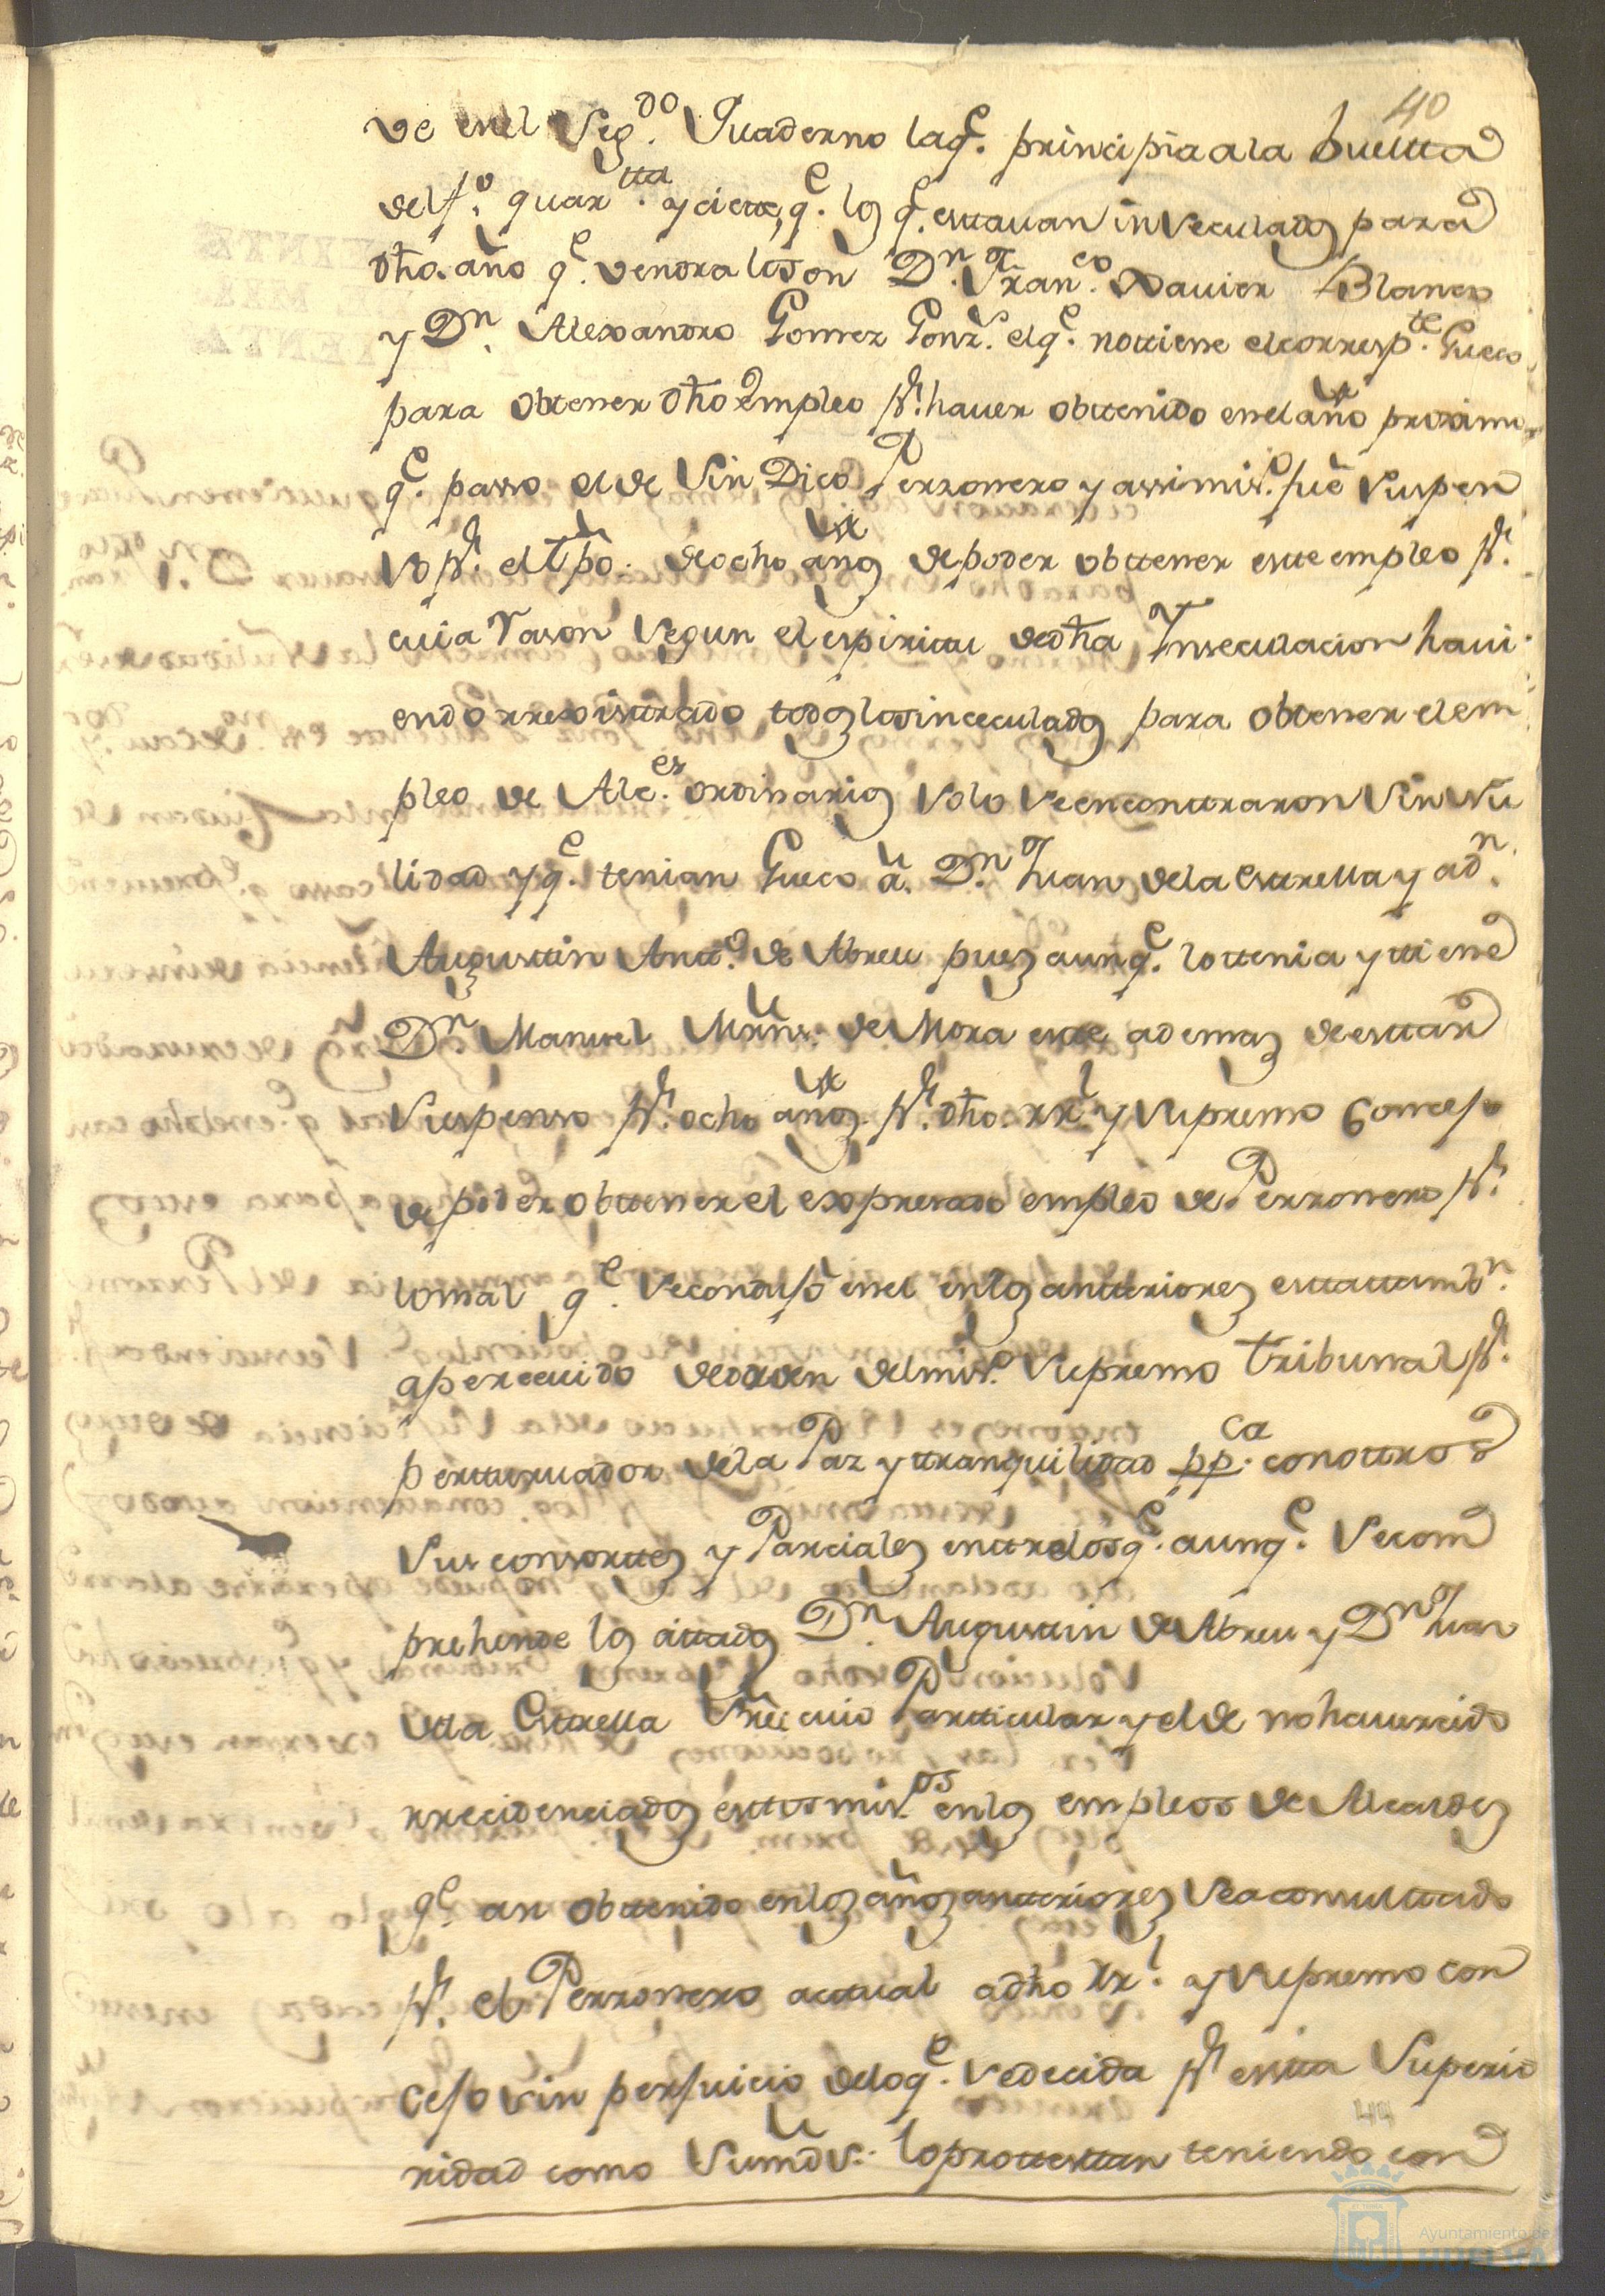 40
de enel Seg.do Quaderno laq.e principia ala buelta
del f.o quar.tta y ciette, q.e los q.e esttauan inseculados para
dho. año q.e vendra lo son D.n Fran.co Xauier Blanco
y D.n Alexandro Gomez Gonz.s elq.e nottiene el corresp.te Gueco
para obtener dho empleo p.r hauer obttenido enel año proximo
q.e passo el de Sindico Perzonero y assimis.o fue suspen
so p.r el tpo. de ocho años de poder obttener este empleo p.r
cuia rason segun el espiritu de dha Inseculacion haui
endo rrexistrado todos los inceculados para obtener el em
pleo de Alc.es ordinarios solo se encontraron sin nu
lidad y q.e tenian Gueco a D.n Juan de la Esttrella y a D.n
Augusttin Antt.o de Abreu pues aunq.e lo ttenia y ttiene
D.n Manuel Mrnz. de Mora este ademas de esttar
suspenso p.r ocho años p.r dho. rr.l y supremo Consejo
de poder obttener el expresado empleo de Perzonero p.r
lo mal q.e se condujo enel enlos antteriores esttattamb.n
apercevido de orden del mis.o supremo tribunal p.r
pertturuador de la Paz y ttranquilidad pp.ca con ottros
sus consorttes y Parciales entre los q.e aunq.e se com
prehende los cittados D.n Augusttin de Abreu y D.n Juan
de la Esttrella sre. cuio Partticular y el de no hauer cido
rrecidenciados esttos mis.os enlos empleos de Alcaldes
q.e an obttenido enlos años antteriores se a consulttado
p.r el Perzonero acttual a dho rr.l y supremo con
cejo sin perjuicio de loq.e se decida p.r estta Superio
ridad como Sumds. lo prottesttan teniendo con
44
Ayuntamiento de
HUELVA